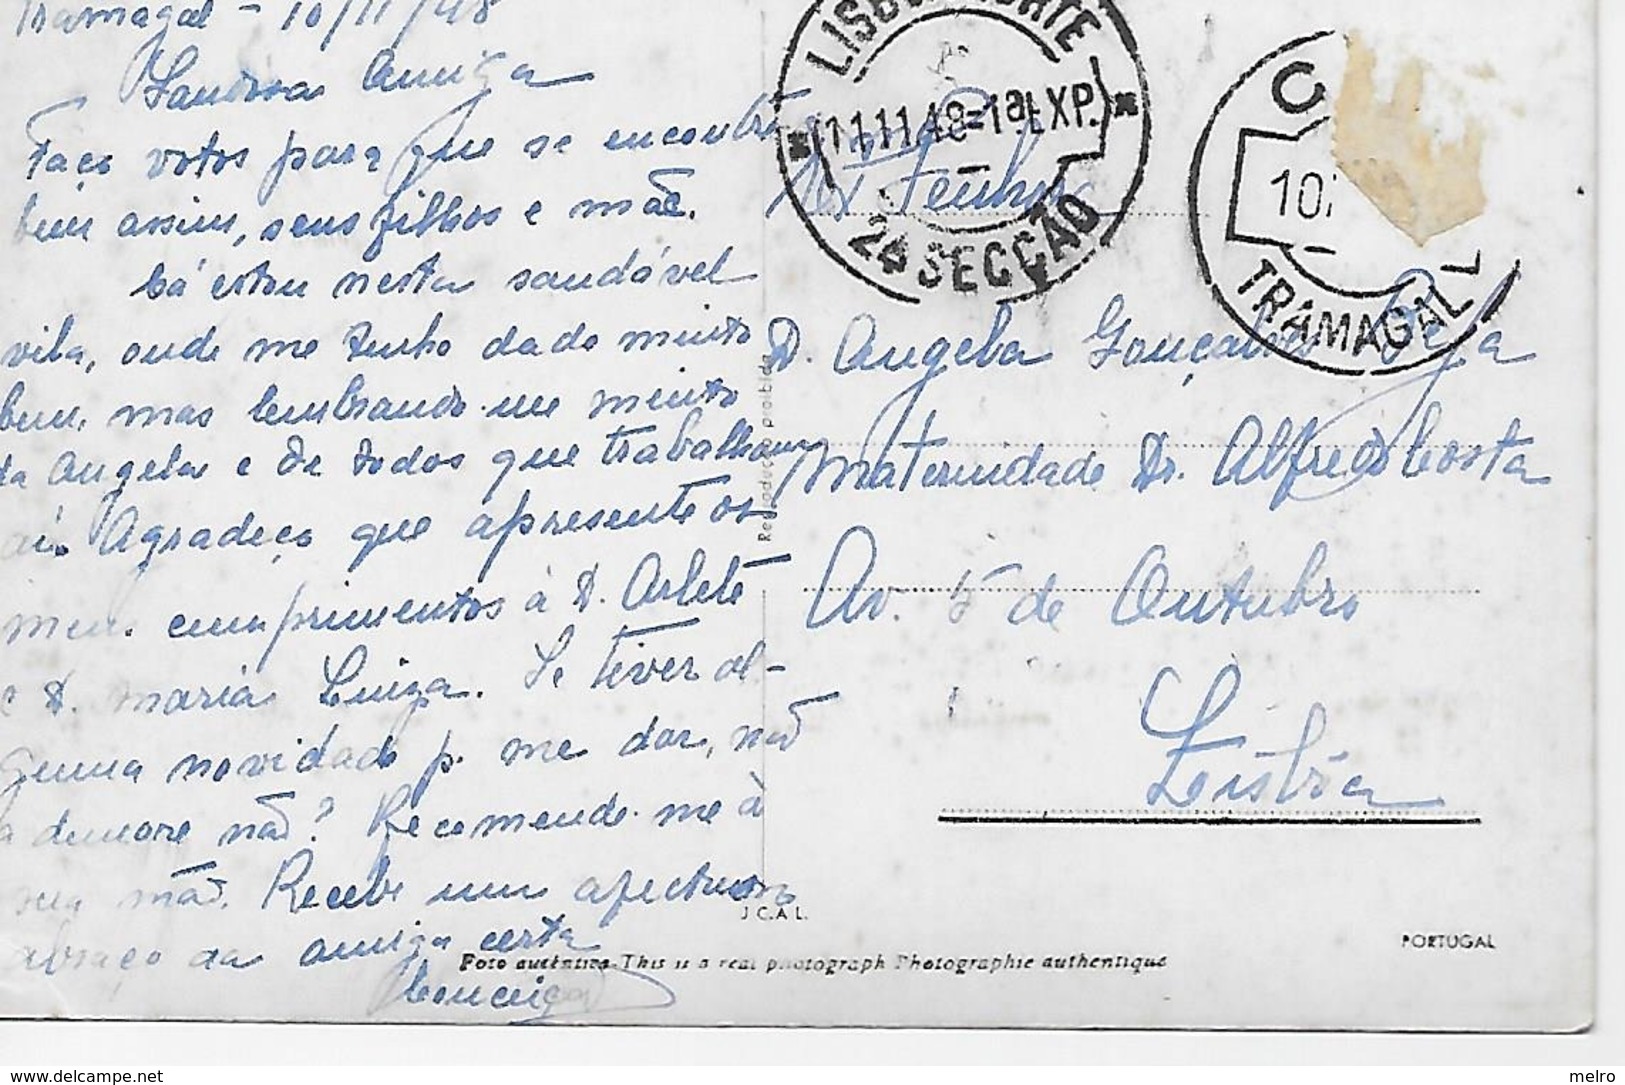 Tramagal - 10/11/48
Saudosa Amiga
Faço votos para que se encontre
bem assim, seus filhos e mãe.
Cá estou nesta saudável
vila, onde me tenho dado muito
bem, mas lembrando-me muito
da Angela e de todos que trabalham
aí. Agradeço que apresente os
meus cumprimentos à D. Arlete
e D. Maria Luiza. Se tiver al-
guma novidade p. me dar, não
a demore não? Recomende-me à
sua mãe. Recebe um afectuoso
abraço da amiga certa
LISBOA NORTE
11.11.48-1ªEXP.
24 SECÇÃO
C
10
TRAMAGAL
Senhora
D. Angela Gonçalves
Maternidade Dr. Alfredo Costa
Av. 5 de Outubro
Lisbôa
Reprodução proibida
J.C.A.L.
PORTUGAL
Foto autêntica This is a real photograph Photographie authentique
www.delcampe.net
melro